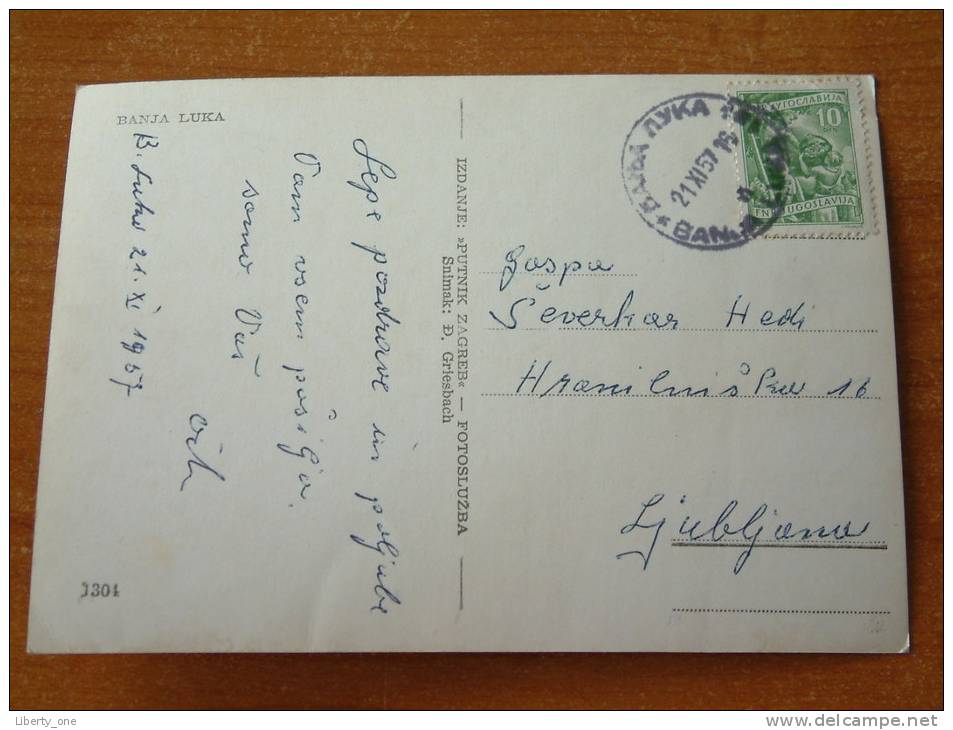 BANJA LUKA
B. Luka 21. XI 1957
Lepe pozdrave in poljube
Vam vsem pošilja
samo Vaš
IZDANJE: »PUTNIK ZAGREB« — FOTOSLUŽBA
Snimak: Đ. Griesbach
1304
БАЊА ЛУКА
21 XI 57 16
BANJA
ЈУГОСЛАВИЈА
10
FNR JUGOSLAVIJA
Gospa
Severkar Hedi
Hranilniška 16
Ljubljana
Liberty_one
delcampe.net